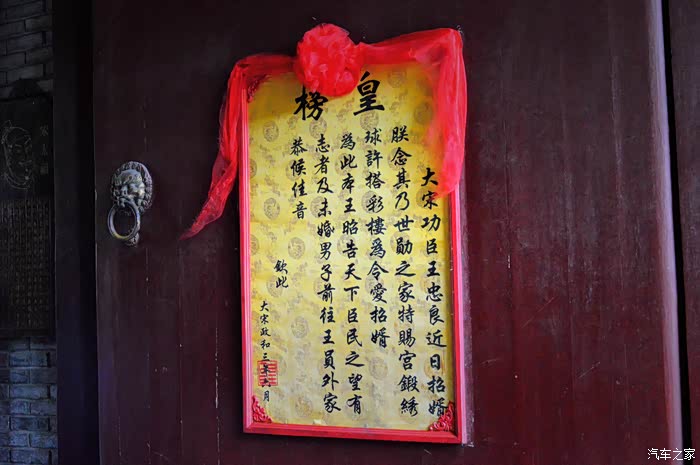 皇榜
大宋功臣王忠良近日招婿
朕念其乃世勋之家特賜宫鍛綉
球許搭彩樓爲令愛招婿
為此奉王昭告天下臣民之望有
志者及未婚男子前往王員外家
恭候佳音
欽此
大宋政和三年六月
汽车之家